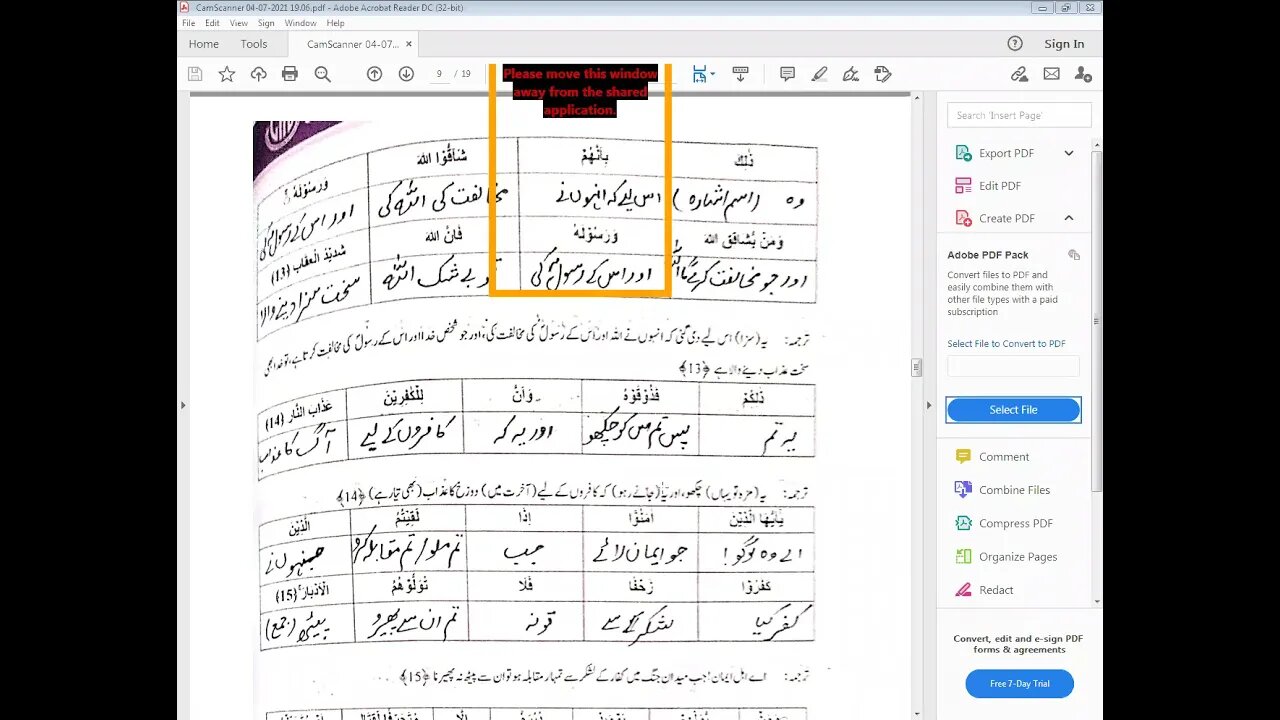 CamScanner 04-07-2021 19.06.pdf - Adobe Acrobat Reader DC (32-bit)
File Edit View Sign Window Help
Home Tools CamScanner 04-07... × Sign In
9 / 19
Please move this window
away from the shared
application.
ذٰلِكَ بِاَنَّهُمْ شَآقُّوا اللهَ وَرَسُوْلَهٗ
وہ (اسم اشارہ) اس لیے کہ انہوں نے مخالفت کی اللہ کی اور اس کے رسولؐ کی
وَمَنْ يُّشَاقِقِ اللهَ وَرَسُوْلَهٗ فَاِنَّ اللهَ شَدِيْدُ الْعِقَابِ (13)
اور جو مخالفت کرے گا اللہ اور اس کے رسولؐ کی تو بے شک اللہ سخت سزا دینے والا
ترجمہ: یہ (سزا) اس لیے دی گئی کہ انہوں نے اللہ اور اس کے رسولؐ کی مخالفت کی، اور جو شخص خدا اور اس کے رسولؐ کی مخالفت کرتا ہے، تو خدا بھی
سخت عذاب دینے والا ہے ﴿13﴾
ذٰلِكُمْ فَذُوْقُوْهُ وَاَنَّ لِلْكٰفِرِيْنَ عَذَابَ النَّارِ (14)
یہ تم پس تم اس کو چکھو اور یہ کہ کافروں کے لیے آگ کا عذاب
ترجمہ: یہ (مزہ تو یہاں) چکھو، اور یہ (جانے رہو) کہ کافروں کے لیے (آخرت میں) دوزخ کا عذاب (بھی تیار ہے) ﴿14﴾
يٰٓاَيُّهَا الَّذِيْنَ اٰمَنُوْٓا اِذَا لَقِيْتُمُ الَّذِيْنَ
اے وہ لوگو! جو ایمان لائے جب تم ملو/تم مقابلہ کرو جنہوں نے
كَفَرُوْا زَحْفًا فَلَا تُوَلُّوْهُمُ الْاَدْبَارَ (15)
کفر کیا لشکر کے سے تو نہ تم ان سے پھیرو پیٹھ (جمع)
ترجمہ: اے اہل ایمان! جب میدان جنگ میں کفار کے لشکر سے تمہارا مقابلہ ہو تو ان سے پیٹھ نہ پھیرنا ﴿15﴾
Search 'Insert Page'
Export PDF
Edit PDF
Create PDF
Adobe PDF Pack
Convert files to PDF and
easily combine them with
other file types with a paid
subscription
Select File to Convert to PDF
Select File
Comment
Combine Files
Compress PDF
Organize Pages
Redact
Convert, edit and e-sign PDF
forms & agreements
Free 7-Day Trial